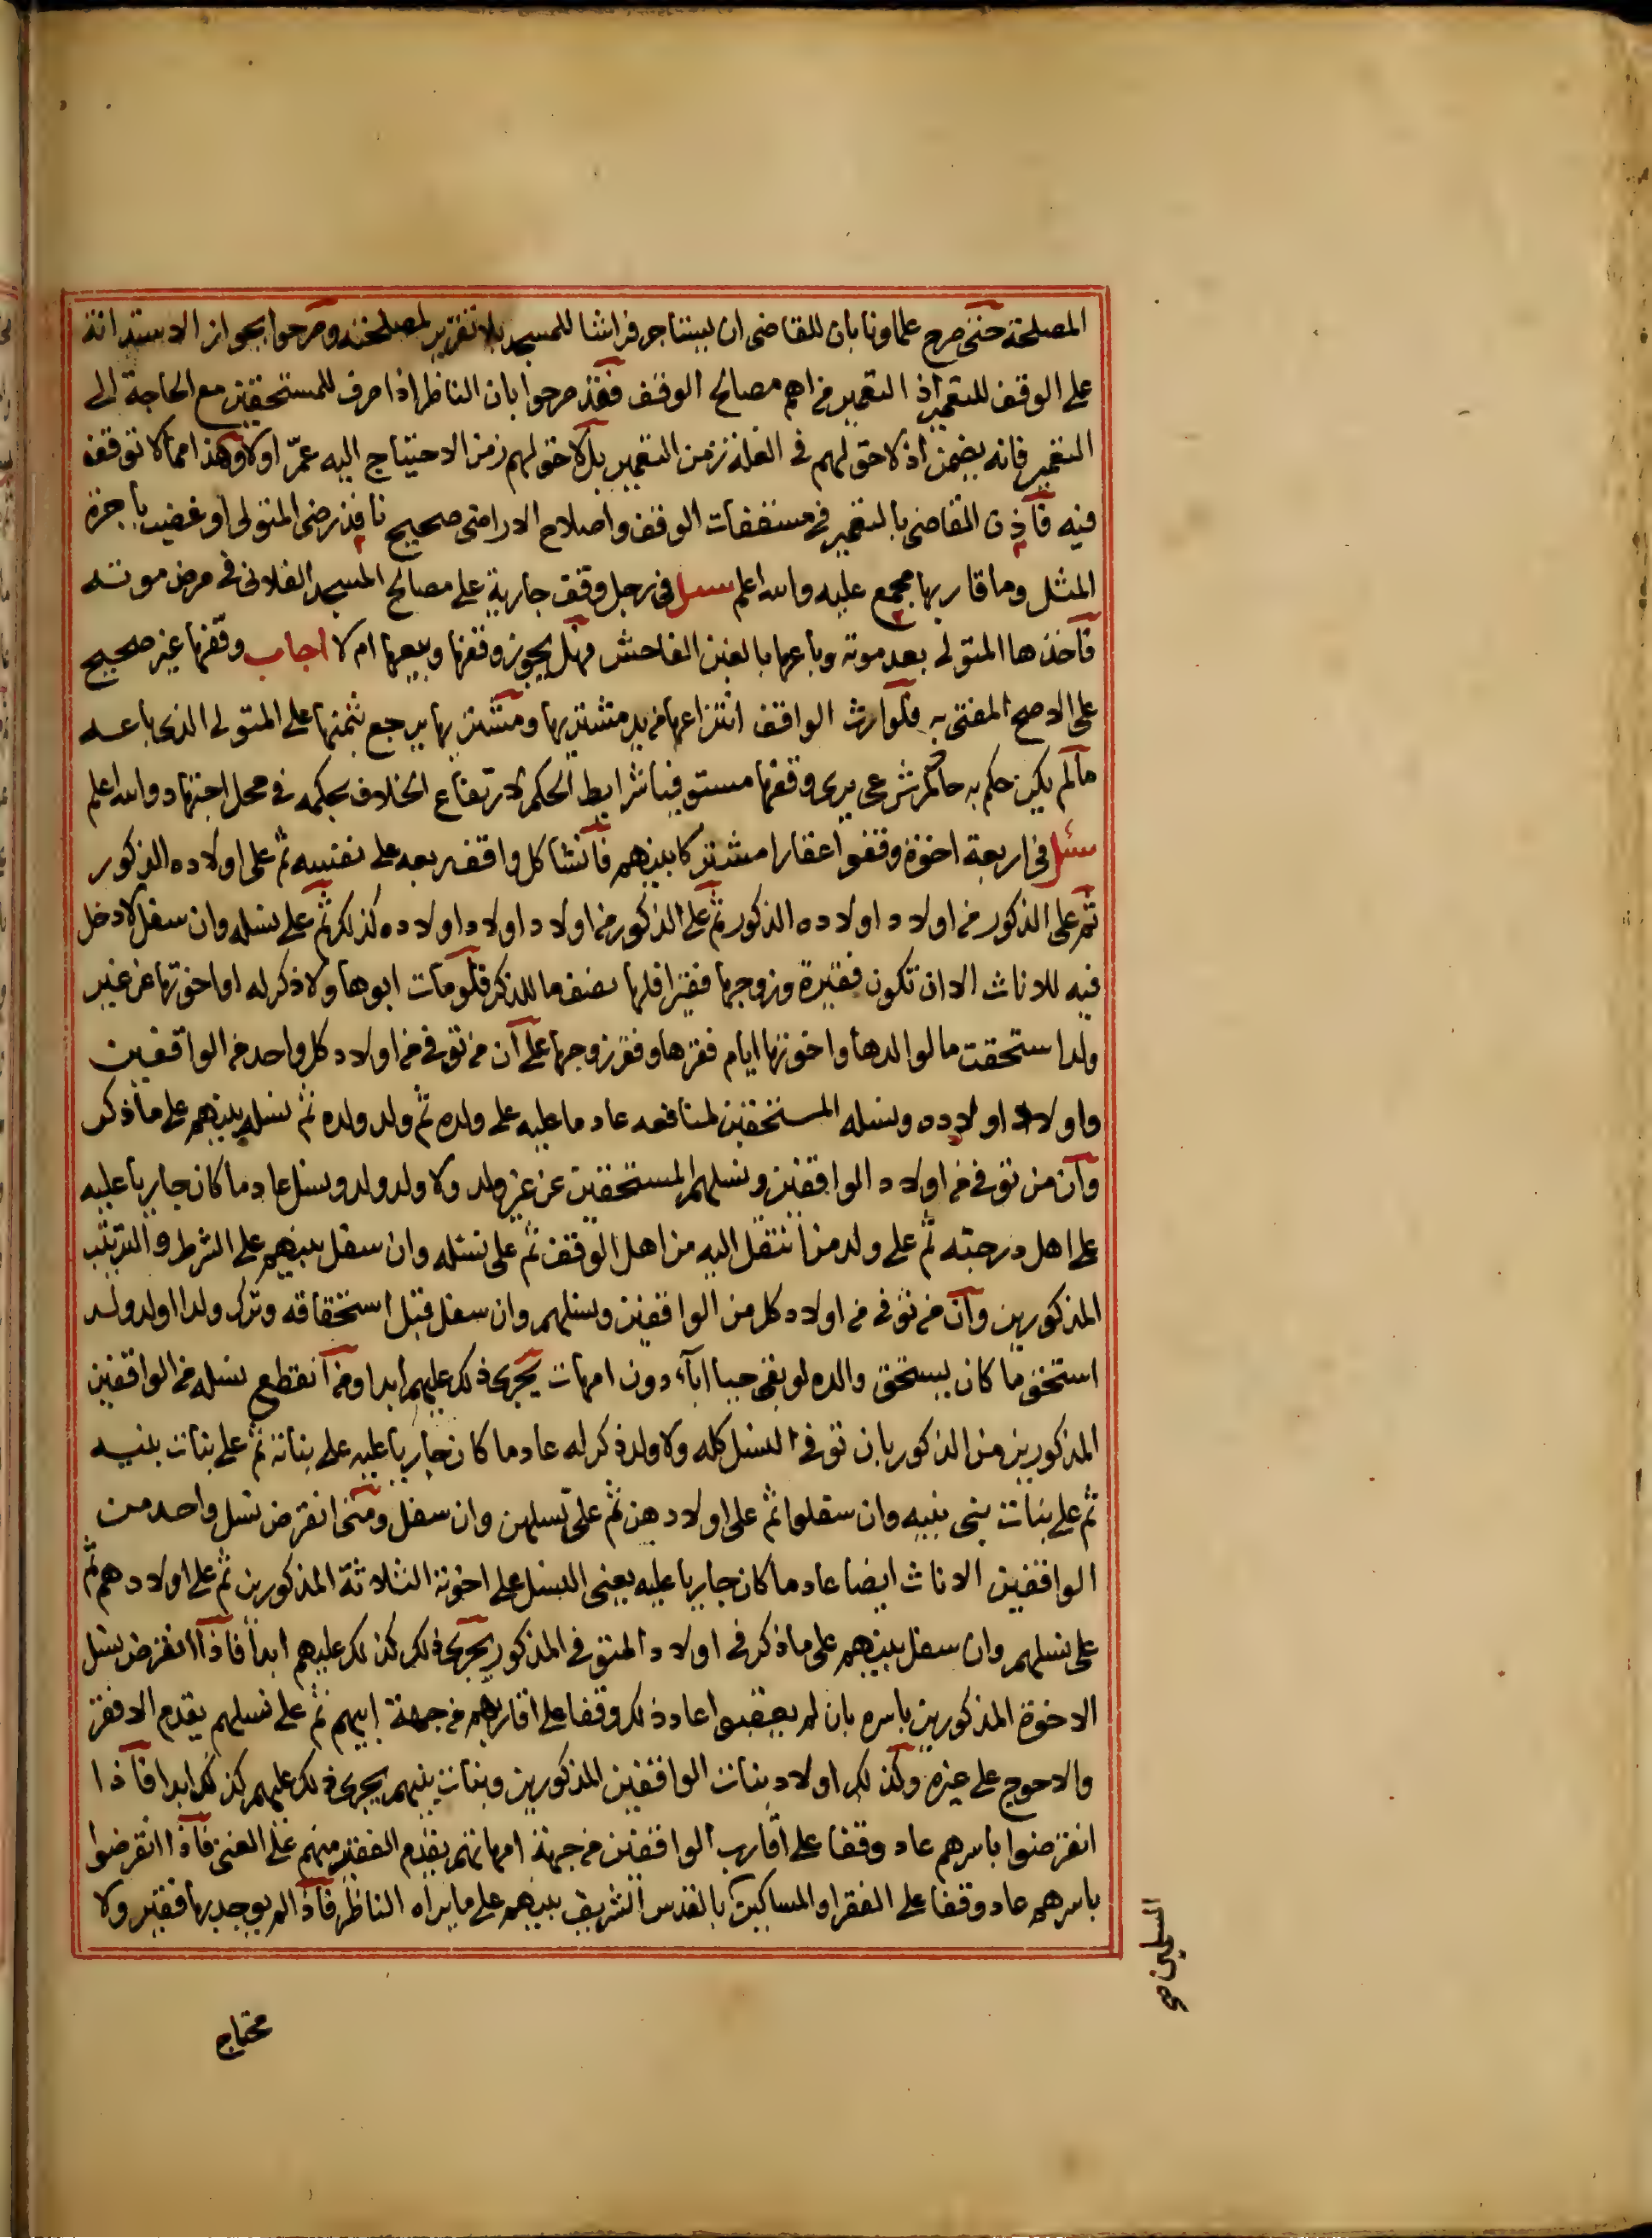 المصلحة حتى صرح علماونا بان للقاضى ان يستاجر فراشا للمسجد بلا تقرير لمصلحته وصرحوا بجواز الاستدانة
على الوقف للتعمير اذ التعمير من اهم مصالح الوقف فقد صرحوا بان الناظر اذا صرف للمستحقين مع الحاجة الى
التعمير فانه يضمن اذ لا حق لهم فى الغلة زمن التعمير بل لا حق لهم زمن الاحتياج اليه عمّر اولا وهذا مما لا توقف
فيه فاذن القاضى بالتعمير فى مسقفات الوقف واصلاح الاراضى صحيح نافذ رضى المتولى او غضب باجرة
المثل وما قاربها مجمع عليه والله اعلم سئل فى رجل وقف جارية على مصالح المسجد الفلانى فى مرض موته
فاخذها المتولى بعد موته وباعها بالغبن الفاحش فهل يجوز وقفها وبيعها ام لا اجاب وقفها غير صحيح
على الاصح المفتى به فلوارث الواقف انتزاعها من يد مشتريها ومشتريها يرجع بثمنها على المتولى الذى باعه
ما لم يكن حكم به حاكم شرعى يرى وقفها مستوفيا شرايط الحكم لارتفاع الخلاف بحكمه فى محل اجتهاد والله اعلم
سئل فى اربعة اخوة وقفوا عقارا مشتركا بينهم فانشا كل واقف ربعه على نفسه ثم على اولاده الذكور
ثم على الذكور من اولاد اولاده الذكور ثم على الذكور من اولاد اولاد اولاده كذلك ثم على نسله وان سفل لا دخل
فيه للاناث الا ان تكون فقيرة وزوجها فقيرا فلها نصف ما للذكر فلو مات ابوها ولا ذكر له او اخوتها عن غير
ولد استحقت ما لوالدها واخوتها ايام فقرها وفقر زوجها على ان من توفى من اولاد كل واحد من الواقفين
واولاد اولاده ونسله المستحقين لمنافعه عاد ما عليه على ولده ثم ولد ولده ثم نسله بينهم على ما ذكر
وان من توفى من اولاد الواقفين ونسلهم المستحقين عن غير ولد ولا ولد ولد ونسل عاد ما كان جاريا عليه
على اهل درجته ثم على ولد من انتقل اليه من اهل الوقف ثم على نسله وان سفل بينهم على الشرط والترتيب
المذكورين وان من توفى من اولاد كل من الواقفين ونسلهم وان سفل قبل استحقاقه وترك ولدا او ولد ولد
استحق ما كان يستحق والده لو بقى حيا اباء دون امهات يجرى ذلك عليهم ابدا ومن انقطع نسله من الواقفين
المذكورين من الذكور بان توفى النسل كله ولا ولد ذكر له عاد ما كان جاريا عليه على بناته ثم على بنات بنيه
ثم على بنات بنى بنيه وان سفلوا ثم على اولادهن ثم على نسلهن وان سفل ومتى انقرض نسل واحد من
الواقفين الاناث ايضا عاد ما كان جاريا عليه يعنى النسل على اخوته الثلاثة المذكورين ثم على اولادهم ثم
على نسلهم وان سفل بينهم على ما ذكر فى اولاد المتوفى المذكور يجرى ذلك كذلك عليهم ابدا فاذا انقرض نسل
الاخوة المذكورين باسره بان لم يعقبوا عاد ذلك وقفا على اقاربهم من جهة ابيهم ثم على نسلهم يقدم الافقر
والاحوج على غيره وكذلك اولاد بنات الواقفين المذكورين وبنات بنيهم يجرى ذلك عليهم كذلك ابدا فاذا
انقرضوا باسرهم عاد وقفا على اقارب الواقفين من جهة امهاتهم يقدم الفقير منهم على الغنى فاذا انقرضوا
باسرهم عاد وقفا على الفقرا والمساكين بالقدس الشريف بينهم على ما يراه الناظر فاذا لم يوجد بها فقير ولا
محتاج